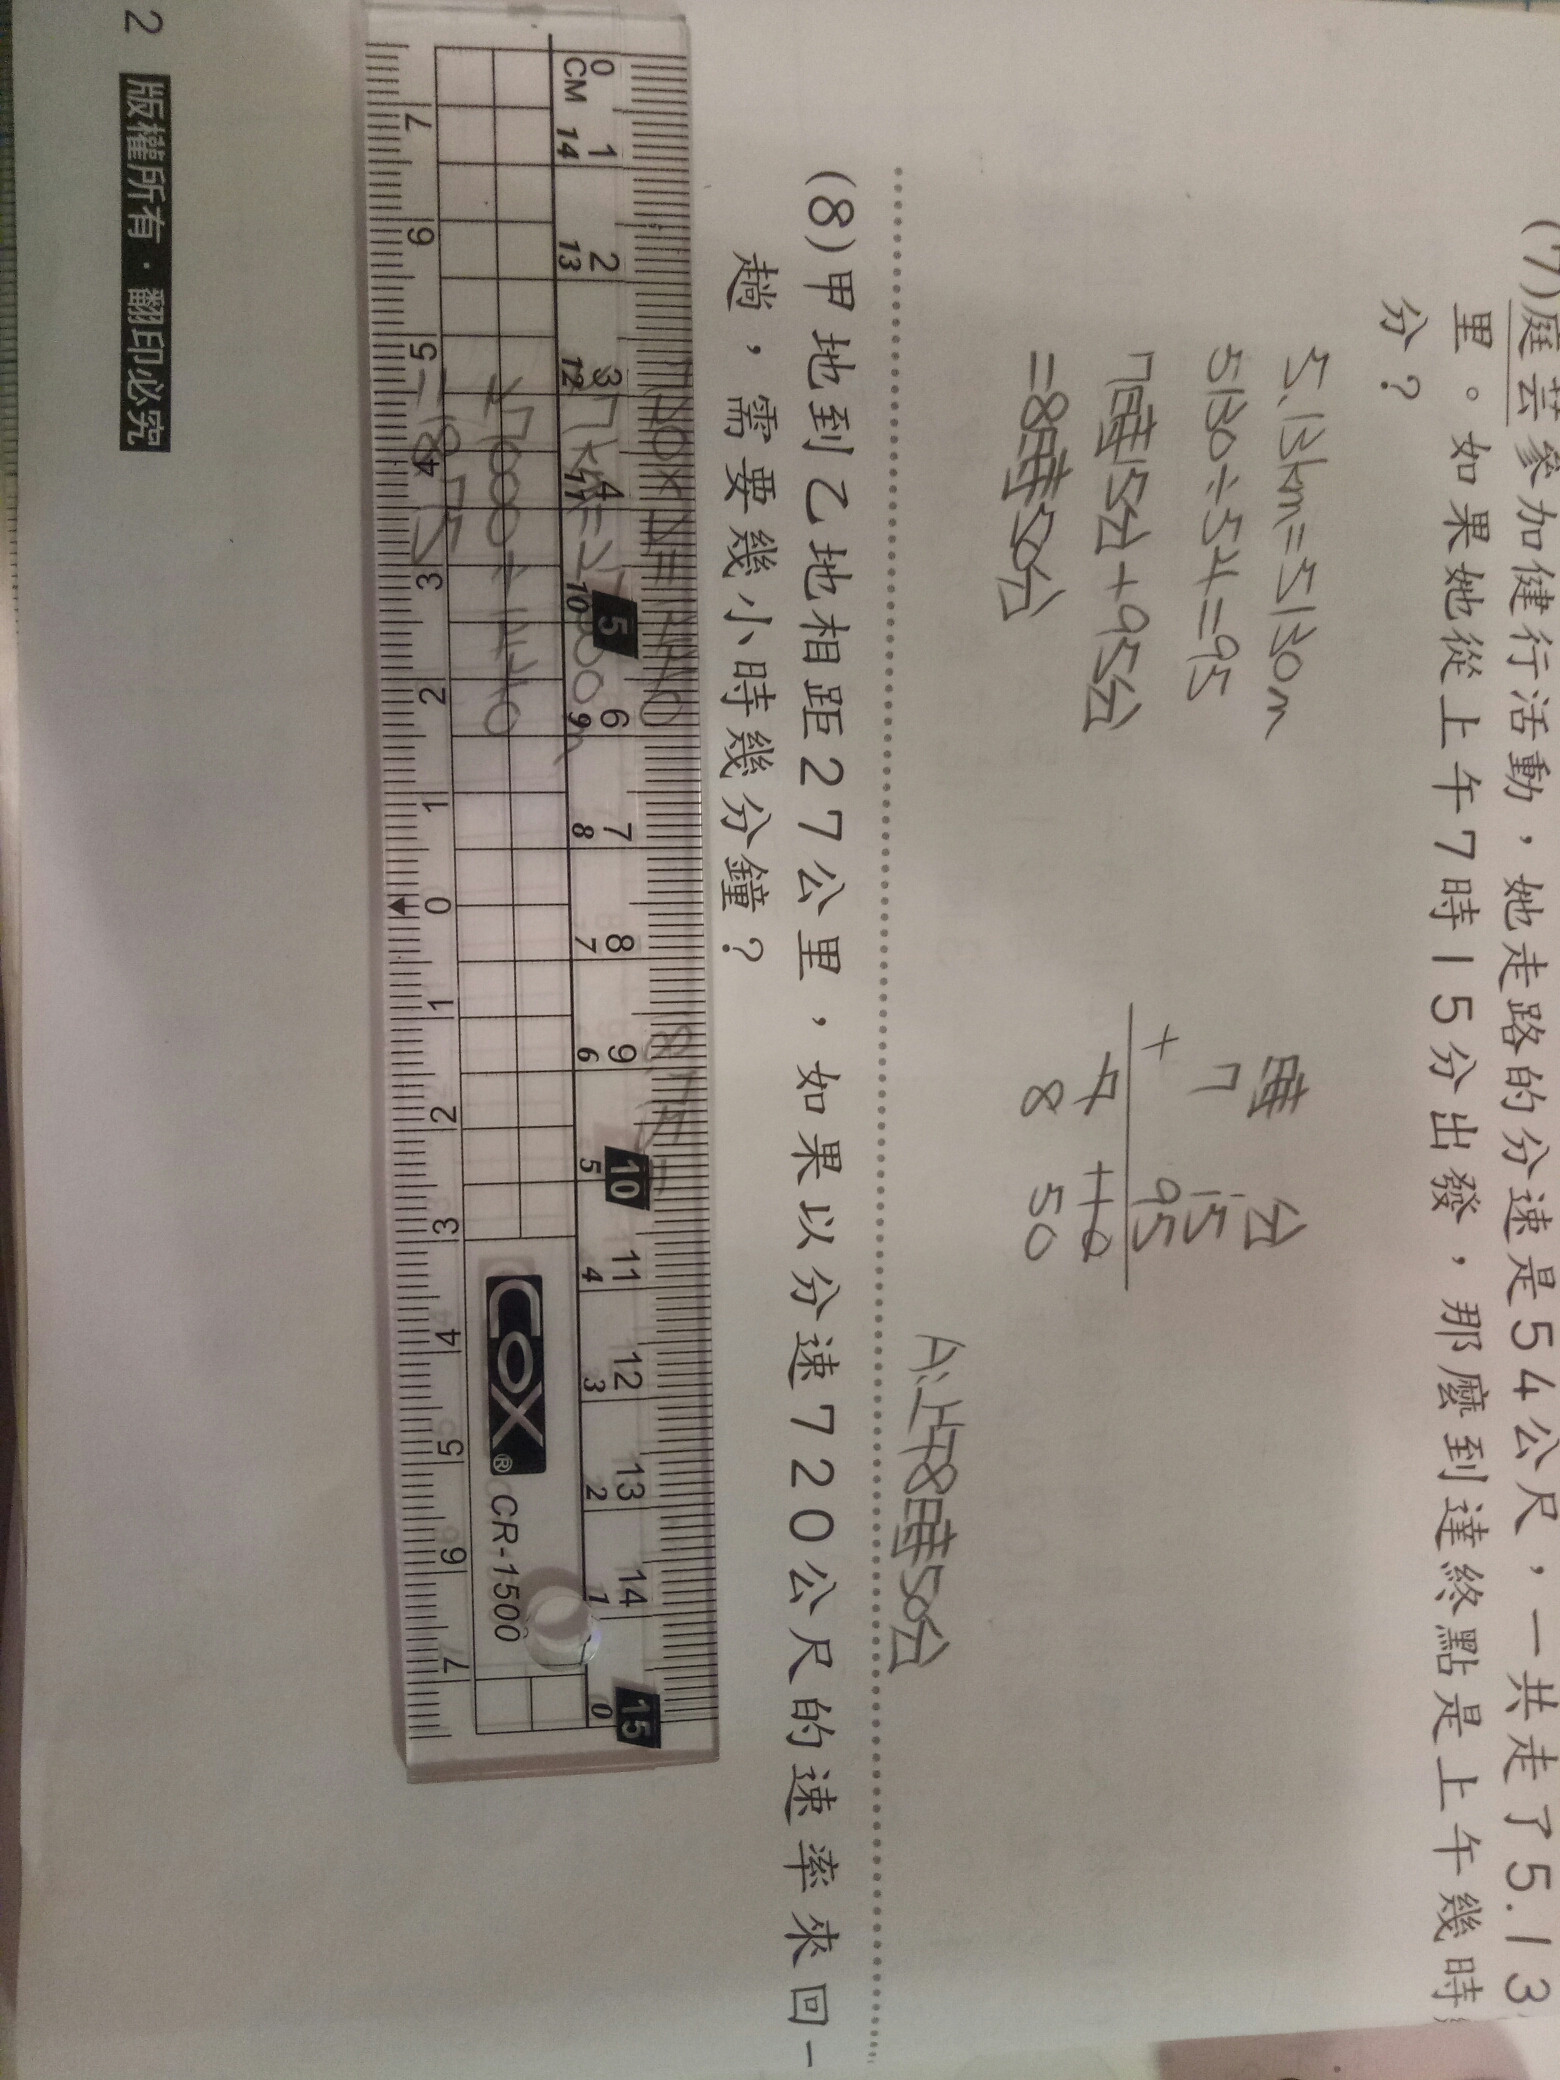 (7)庭芸參加健行活動，她走路的分速是54公尺，一共走了5.13
里。如果她從上午7時15分出發，那麼到達終點是上午幾時
分？
5.13km=5130m
5130÷54=95
7時15分+95分
=8時50分
時 分
7 15
+ 95
8 50
A:上午8時50分
(8)甲地到乙地相距27公里，如果以分速720公尺的速率來回一
趟，需要幾小時幾分鐘？
0 1 2 3 4 5 6 7 8 9 10 11 12 13 14 15
CM 14 13 12 11 10 9 8 7 6 5 4 3 2 1 0
27000÷1440
=18.75
COX® CR-1500
7 6 5 4 3 2 1 0 1 2 3 4 5 6 7
2 版權所有·翻印必究